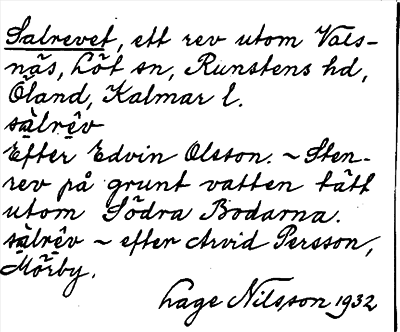 Salrevet, ett rev utom Vals-
näs, Löt sn, Runstens hd,
Öland, Kalmar l.
sàlrêv
Efter Edvin Olsson. ~ Sten-
rev på grunt vatten tätt
utom Södra Bodarna.
sàlrêv ~ efter Arvid Persson,
Mörby.
Lage Nilsson 1932